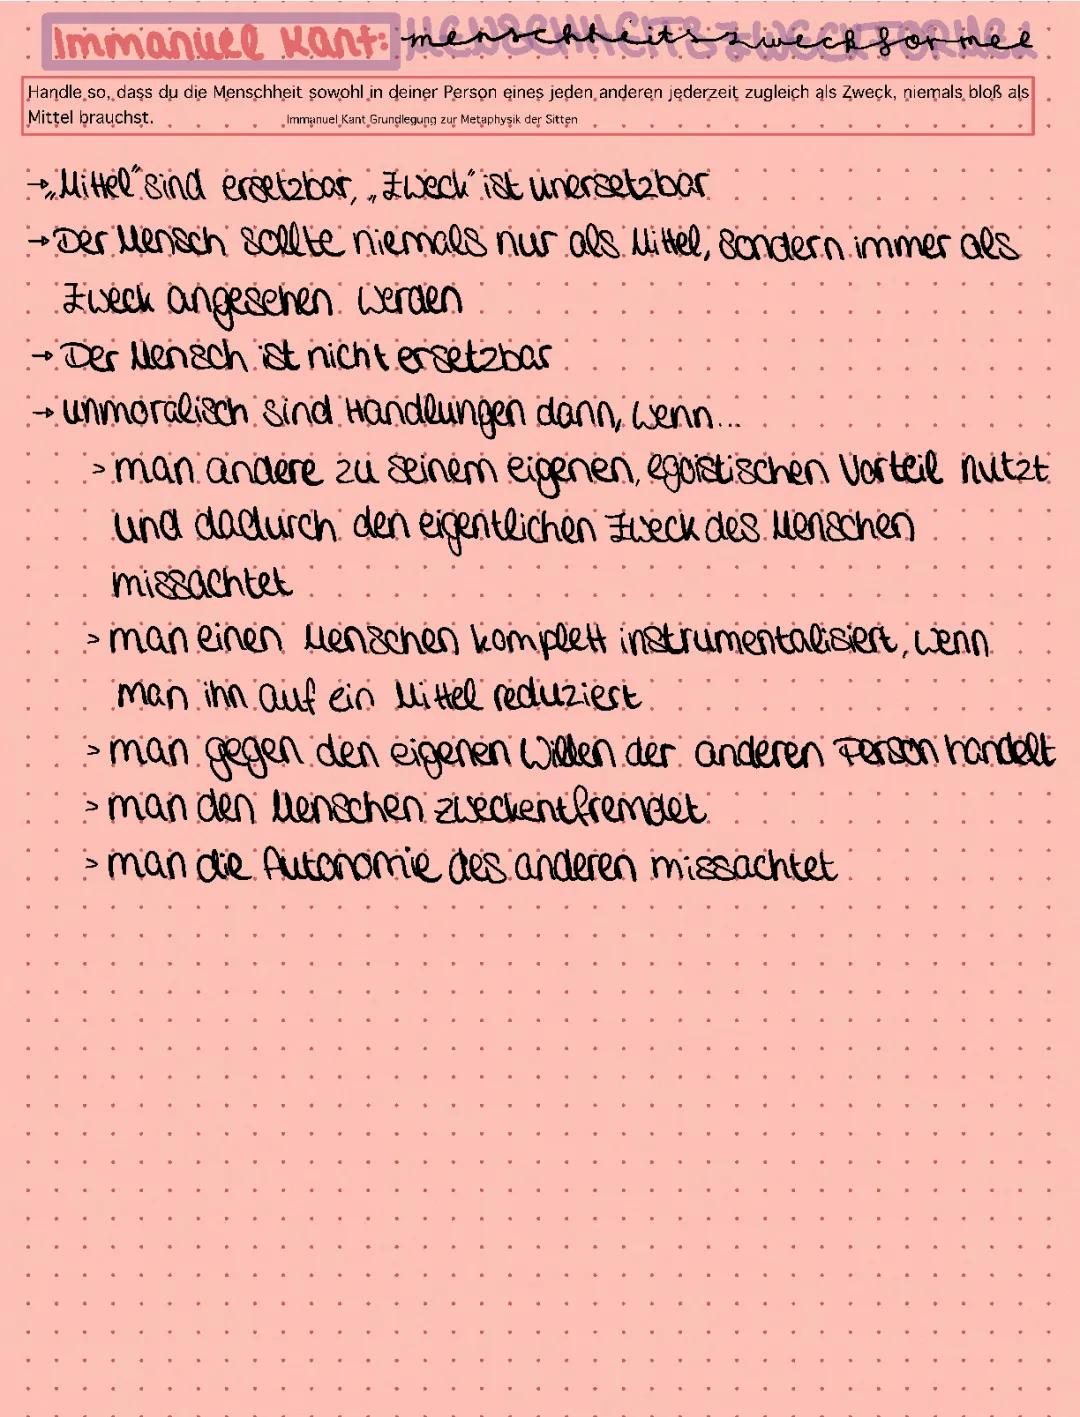 Immanuel Kant: menschheitszweckformel
Handle so, dass du die Menschheit sowohl in deiner Person eines jeden anderen jederzeit zugleich als Zweck, niemals bloß als
Mittel brauchst.
Immanuel Kant Grundlegung zur Metaphysik der Sitten
→ „Mittel" sind ersetzbar, „Zweck" ist unersetzbar
→ Der Mensch sollte niemals nur als Mittel, sondern immer als
Zweck angesehen werden
→ Der Mensch ist nicht ersetzbar
→ unmoralisch sind Handlungen dann, wenn...
> man andere zu seinem eigenen, egoistischen Vorteil nutzt
und dadurch den eigentlichen Zweck des Menschen
missachtet
> man einen Menschen komplett instrumentalisiert, wenn
man ihn auf ein Mittel reduziert
> man gegen den eigenen Willen der anderen Person handelt
> man den Menschen zweckentfremdet
> man die Autonomie des anderen missachtet